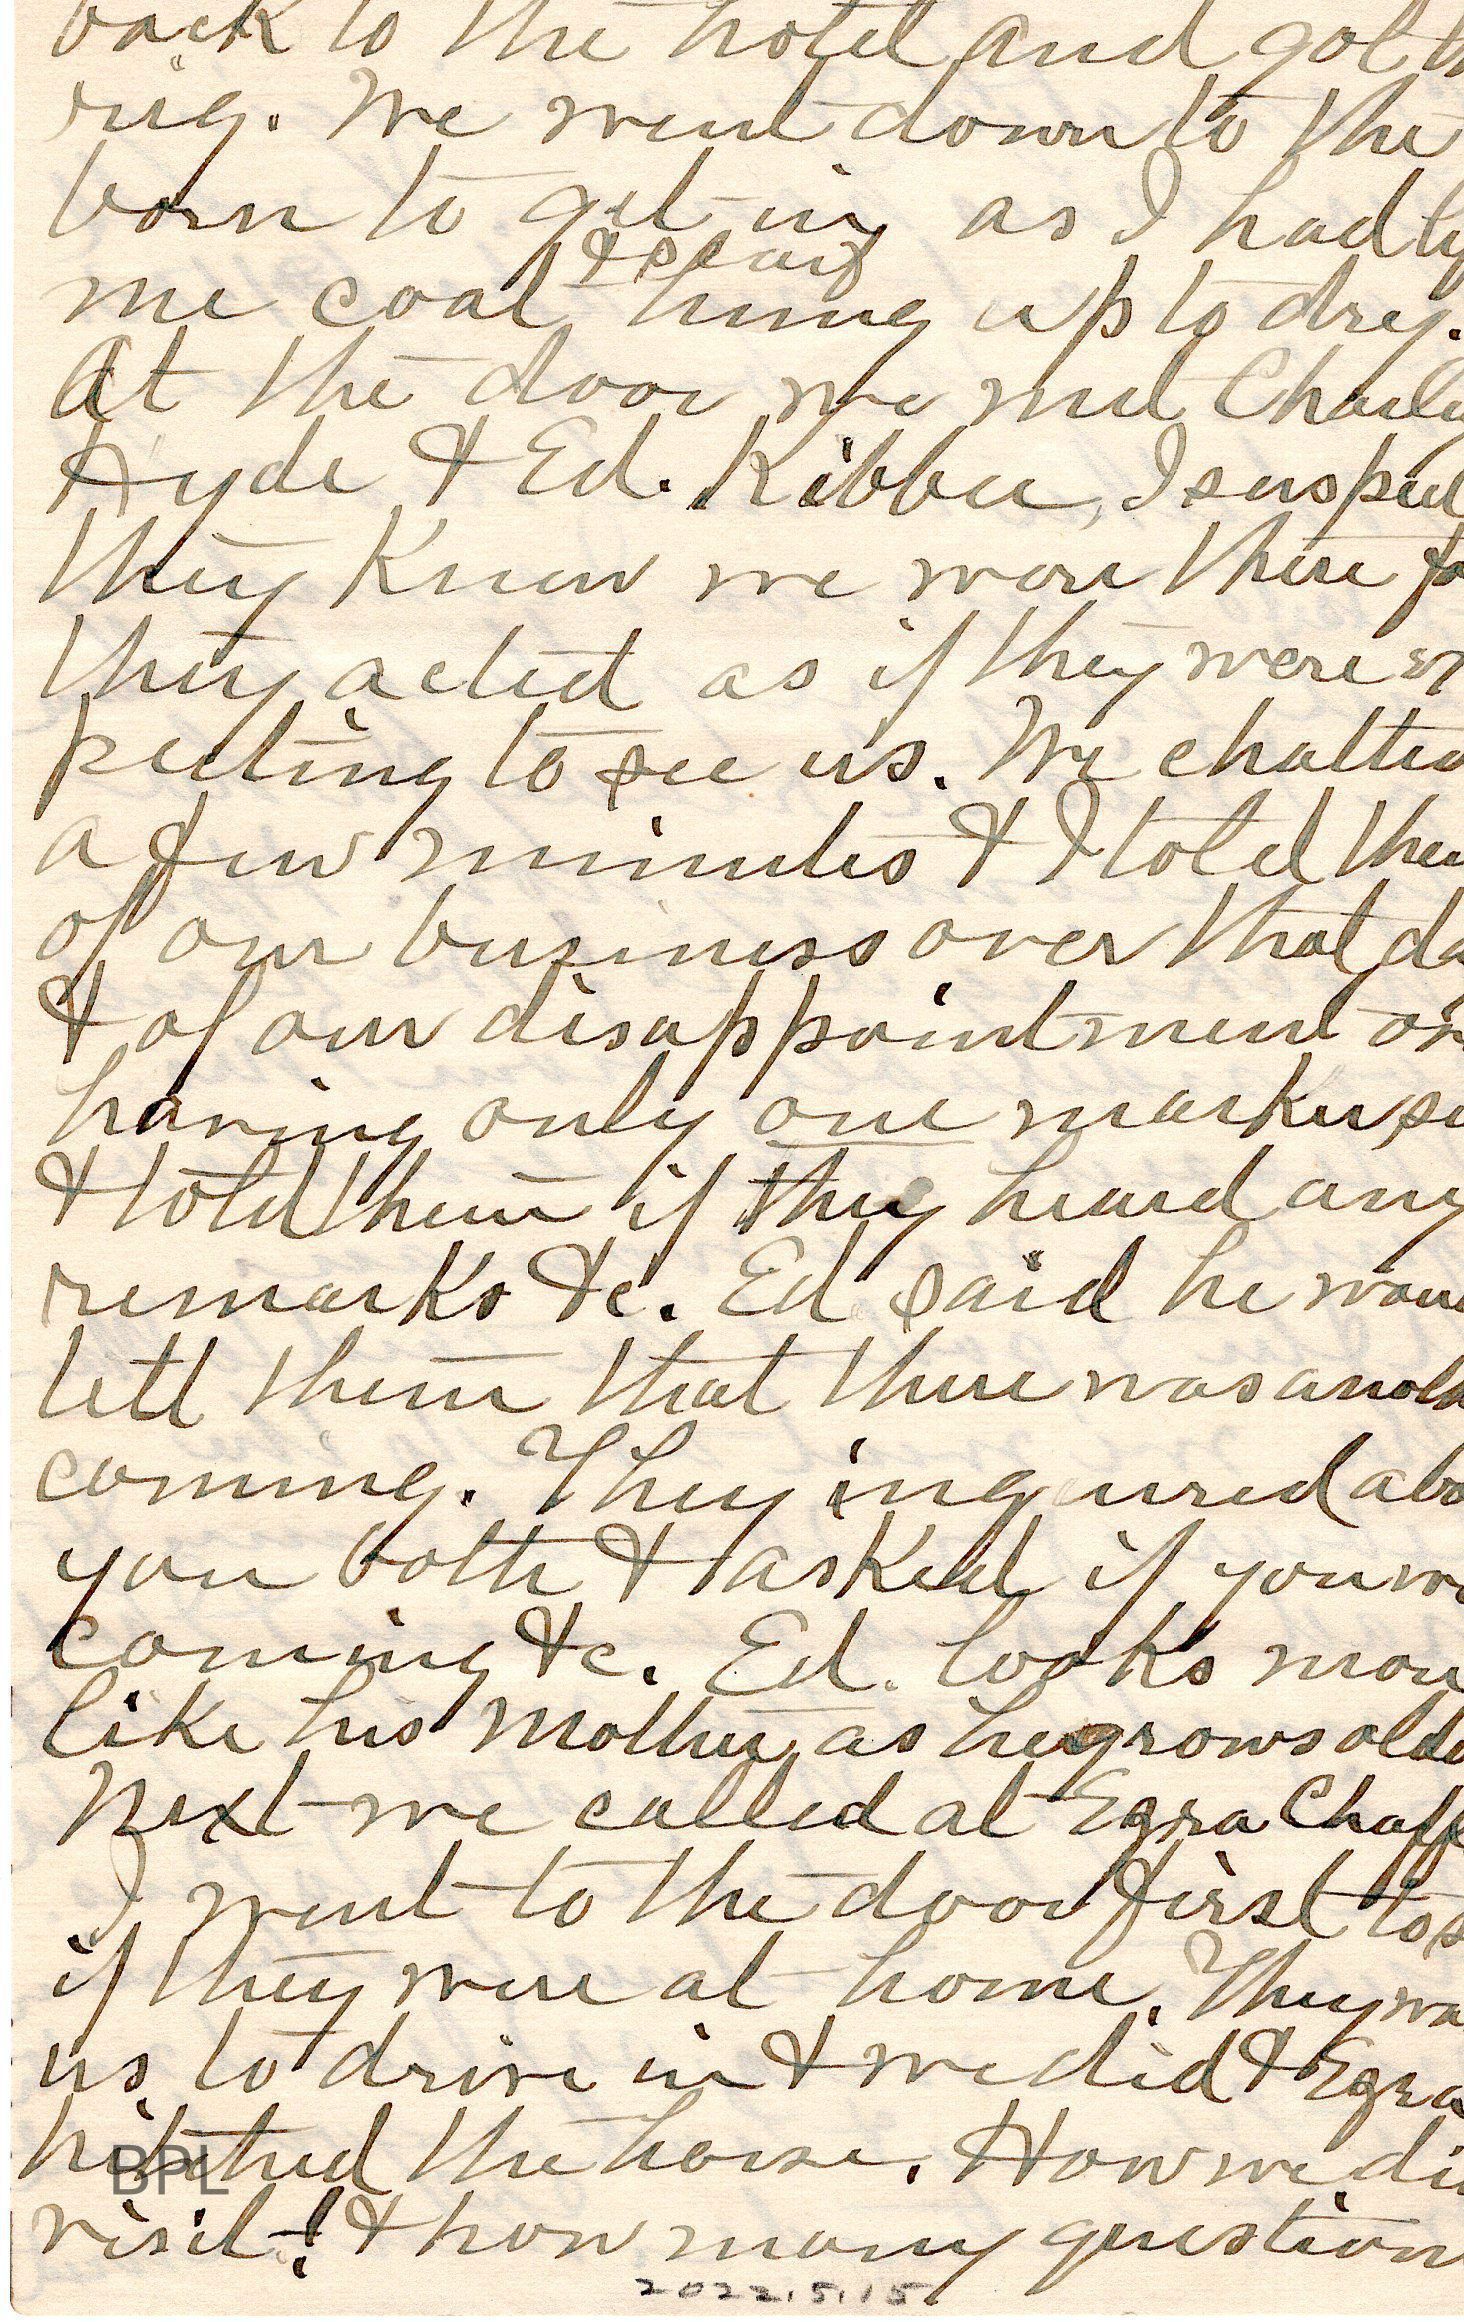 back to the hotel and got th
rig. We went down to the
barn to get in, as I had
& scarf
me coat hung up to dry.
At the door we met Charley
Hyde & Ed. Kibbee, I suspect
they knew we were there for
they acted as if they were ex
pecting to see us. We chatted
a few minutes & I told them
of our business over that da
& of our disappointment on
having only one marker, se
& told them if they heard any
remarks &c. Ed said he woul
tell them that there was anoth
coming. They inquired abo
you both & asked if you we
coming &c. Ed. looks more
like his Mother as he grows olde
Next we called at Ezra Chaff
I went to the door first to s
if they were at home. They wa
us to drive in & we did & Ezra
hitched the horse. How we di
visit! & how many question
BPL
2022.5.15